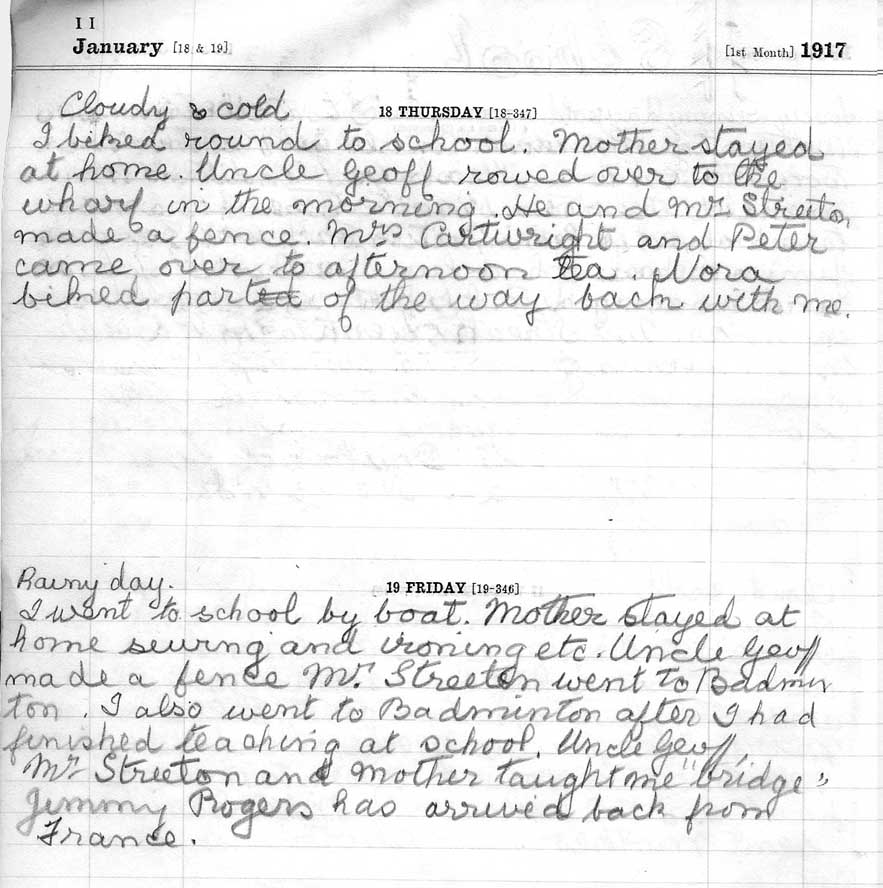 II
January [18 & 19] [1st Month] 1917
Cloudy & cold 18 THURSDAY [18-347]
I biked round to school. Mother stayed
at home. Uncle Geoff rowed over to the
wharf in the morning. He and Mr. Streeton
made a fence. Mrs Cartwright and Peter
came over to afternoon tea. Nora
biked part of the way back with me.
Rainy day. 19 FRIDAY [19-346]
I went to school by boat. Mother stayed at
home sewing and ironing etc. Uncle Geoff
made a fence Mr. Streeton went to Badmin
ton. I also went to Badminton after I had
finished teaching at school. Uncle Geoff,
Mr Streeton and Mother taught me "bridge"
Jimmy Rogers has arrived back from
France.